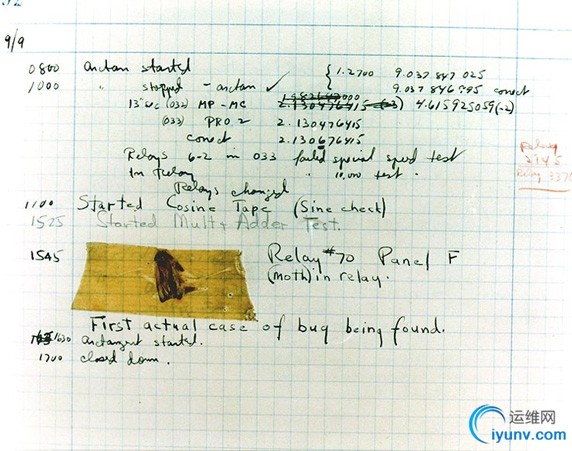 9/9
0800 arctan started { 1.2700 9.037 847 025
1000 " stopped - arctan ✓ 9.037 846 995 correct
13"uc (032) MP-MC 2.130476415 (-3) 4.615925059(-2)
(033) PRO 2 2.130476415
correct 2.130676415
Relays 6-2 in 033 failed special speed test
In Relay " 10,000 test .
Relays changed
Relay
2145
Relay 3370
1100 Started Cosine Tape (Sine check)
1525 Started Mult+ Adder Test.
1545 Relay #70 Panel F
(moth) in relay.
First actual case of bug being found.
1630 arctangent started.
1700 closed down.
运维网
iyunv.com